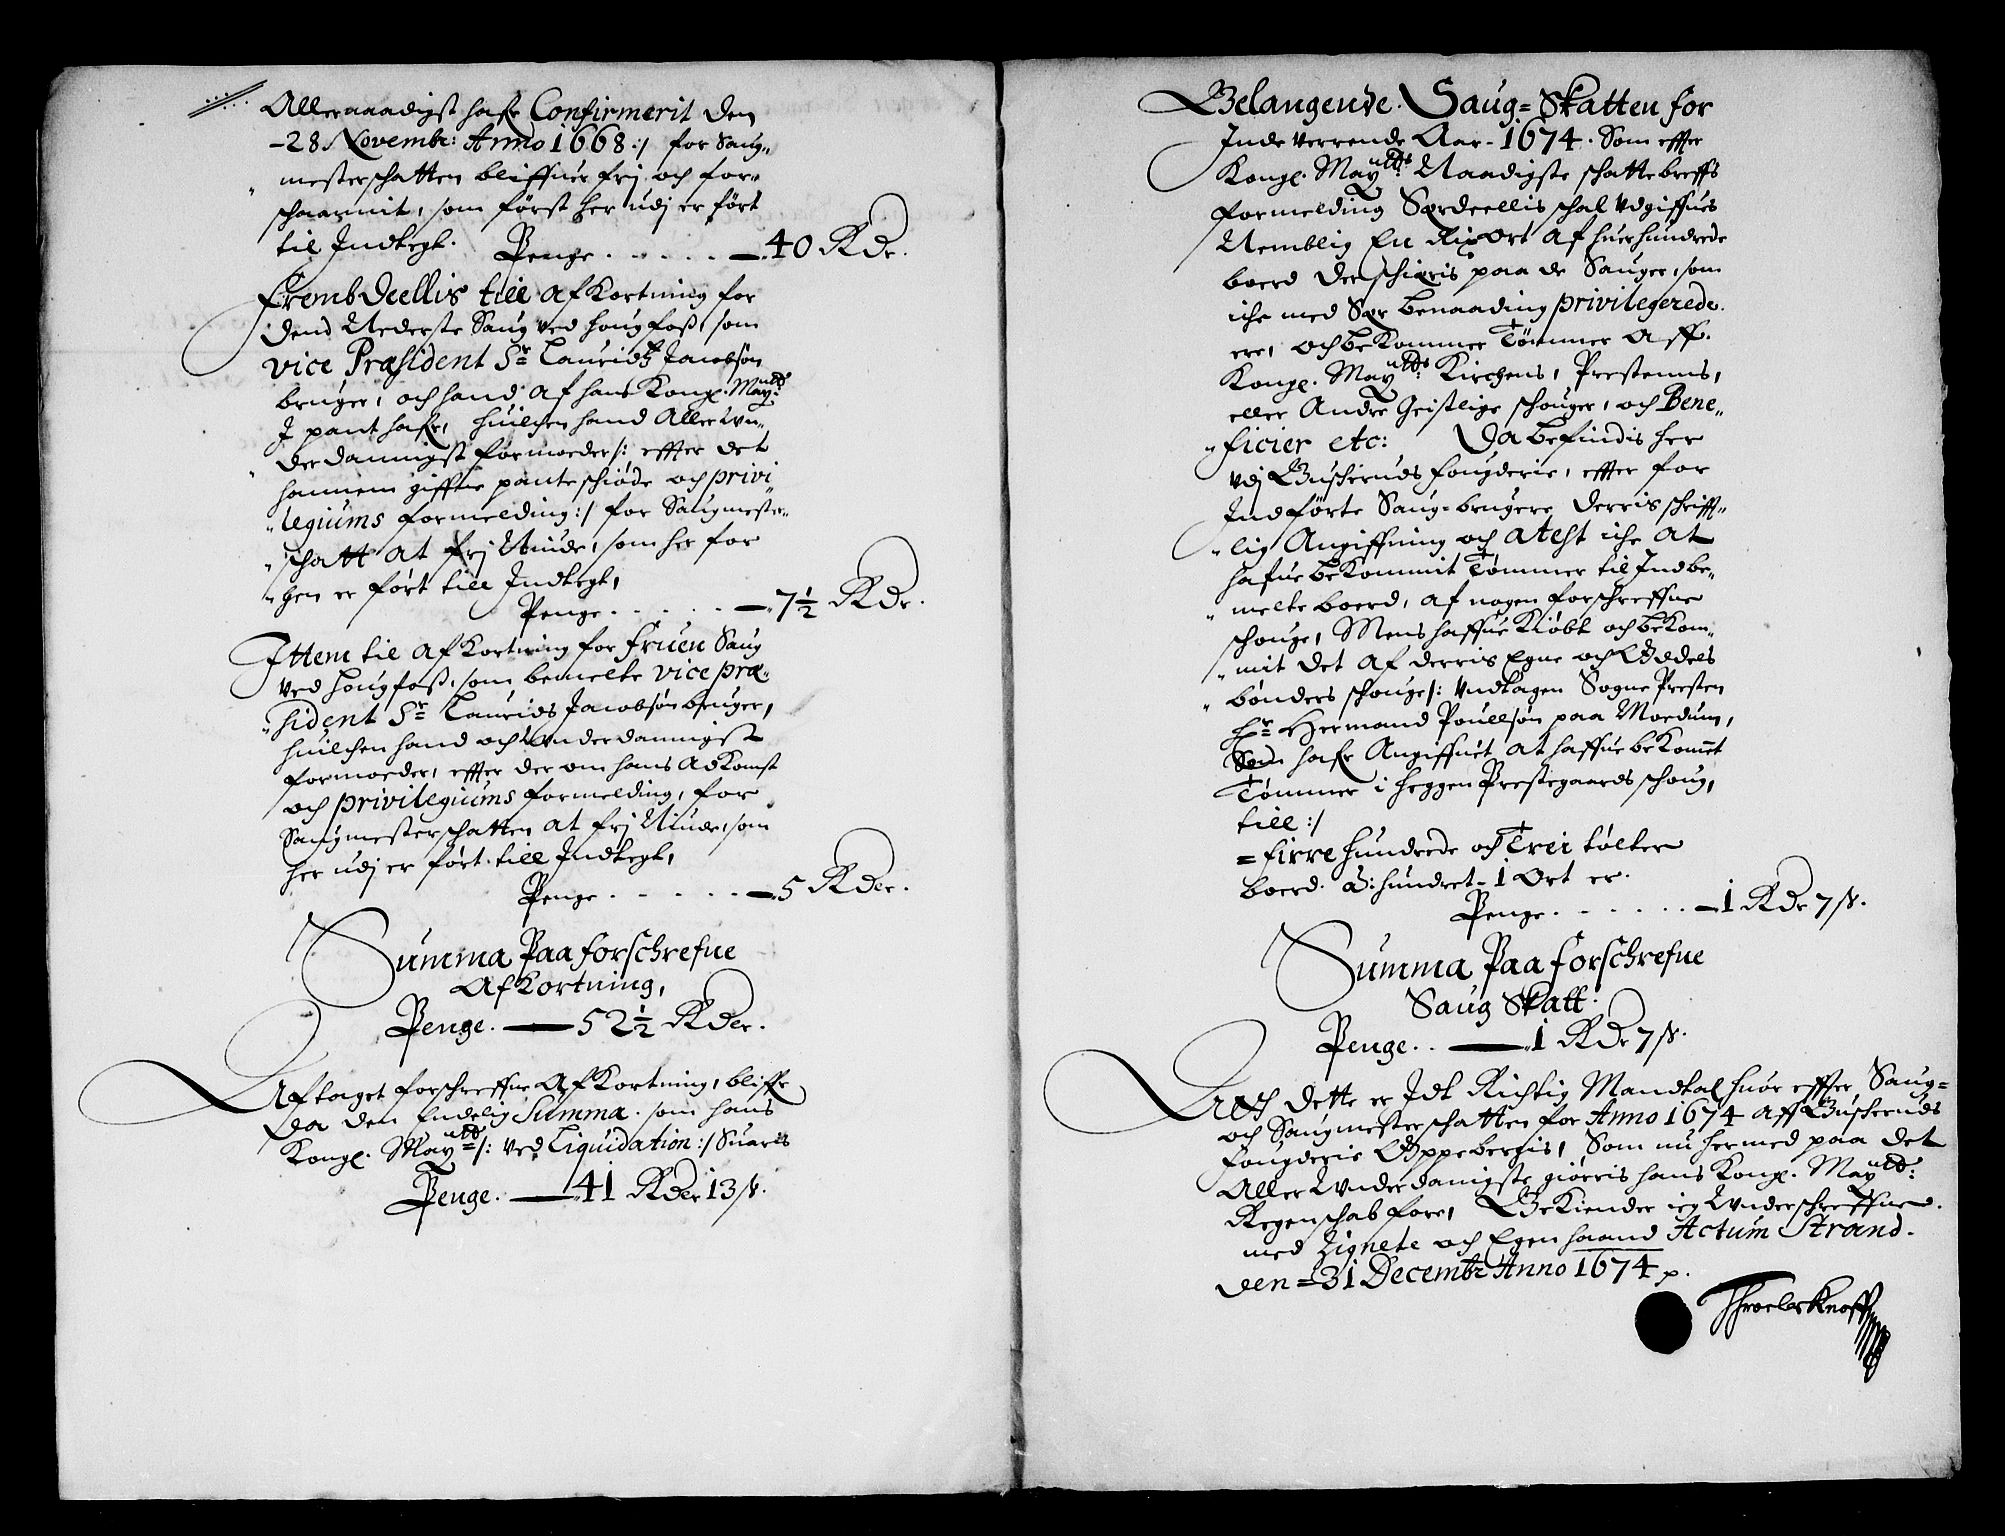 Allernaadigst hafr Confirmerit den
-28 Novembr: Anno 1668:/ for Saug„
mesterschatten bliffuer frj och for„
schaannit, som først her udj er ført
til Indtegt. Penge . . . . . — 40 Rdr.
Frembdeellis till Afkortning for
dend Nederste Saug ved hougfoss, som
vice Præsident Sr Lauridtz Jacobsøn
bruger, och hand af hans Kongl. Maytt:
I pant hafr, huilchen hand Allerun„
derdannigst formoeder/: effter det
hannem giffne panteschiøde och privi
„legiums formelding:/ for Saugmester„
„schatt at frj Niude, som her for
„hen er ført till Indtegt,
Penge . . . . . — 7½ Rdr.
Ittem til Afkortning for fruen Saug
ved hougfoss, som bemelte vice præ„
„sident Sr Laurids Jacobsøn bruger,
huilchen hand och Underdannigst
formoeder, effter der om hans Adkomst
och privilegiums formelding, for
Saugmesterschatten at frj Niude, som
her udj er ført till Indtegt,
Penge . . . . . — 5 Rder.
Summa Paa forschrefne
Afkortning,
Penge. — 52½ Rder.
Aftaget forschreffne Afkortning, bliffr
da den Endelig Summa. som hans
Kongl. Maytt/: ved Liquidation:/ Suaris
Penge. — 41 Rder 13 ß.
Belangende. Saug=Skatten for
Inde verrende Aar - 1674. Som effter
Kongl. Maytts: Naadigste schattebreffs
formelding Særdeellis schal udgiffues
Nemblig En Rixort af huer hundrede
boerd der schiæris paa de Sauger, som
iche med Sær benaading privilegerede.
ere, och bekommer Tømmer Aff.
Kongl. Maytts: Kirchens, Prestenns,
eller Andre Geistlige schouger, och Bene„
„ficier etc: Da befindis her
udj Buscheruds fougderie, effter for
Indførte Saug-brugere derris schrifft„
„lig Angiffning och atest iche at
hafue bekommit Tømmer til Indbe„
„melte boerd, af nogen forschreffne
schouge, Mens haffue Kiøbt och bekom„
„mit det af derris Egne och Oedels
„bønders schouge/: undtagen Sogne Presten
Hr Hermand Poullsøn paa Moedum,
Som hafr Angiffuet at haffue bekommet
Tømmer i heggen Prestegaards schoug,
till:/
=firre hundrede och Trei tølter
boerd. à: hundret - 1 Ort er.
Penge . . . . . — 1 Rdr 7 ß.
Summa Paa forschrefne
Saug Skatt.
Penge . . — 1 Rdr 7 ß.
At dette er Idt Richtig Mandtal huor effter Saug=
och Saugmesterschatten for Anno 1674 aff Buscheruds
fougderie Oppebergis, Som nu hermed paa det
Allerunderdanigste giørris hans Kongl. Maytt:
Regenschab fore, Bekiender ieg Underschreffne.
med Zignete och Egen haand Actum Strand.
den = 31 Decembr Anno 1674 p.
Throels Knoff